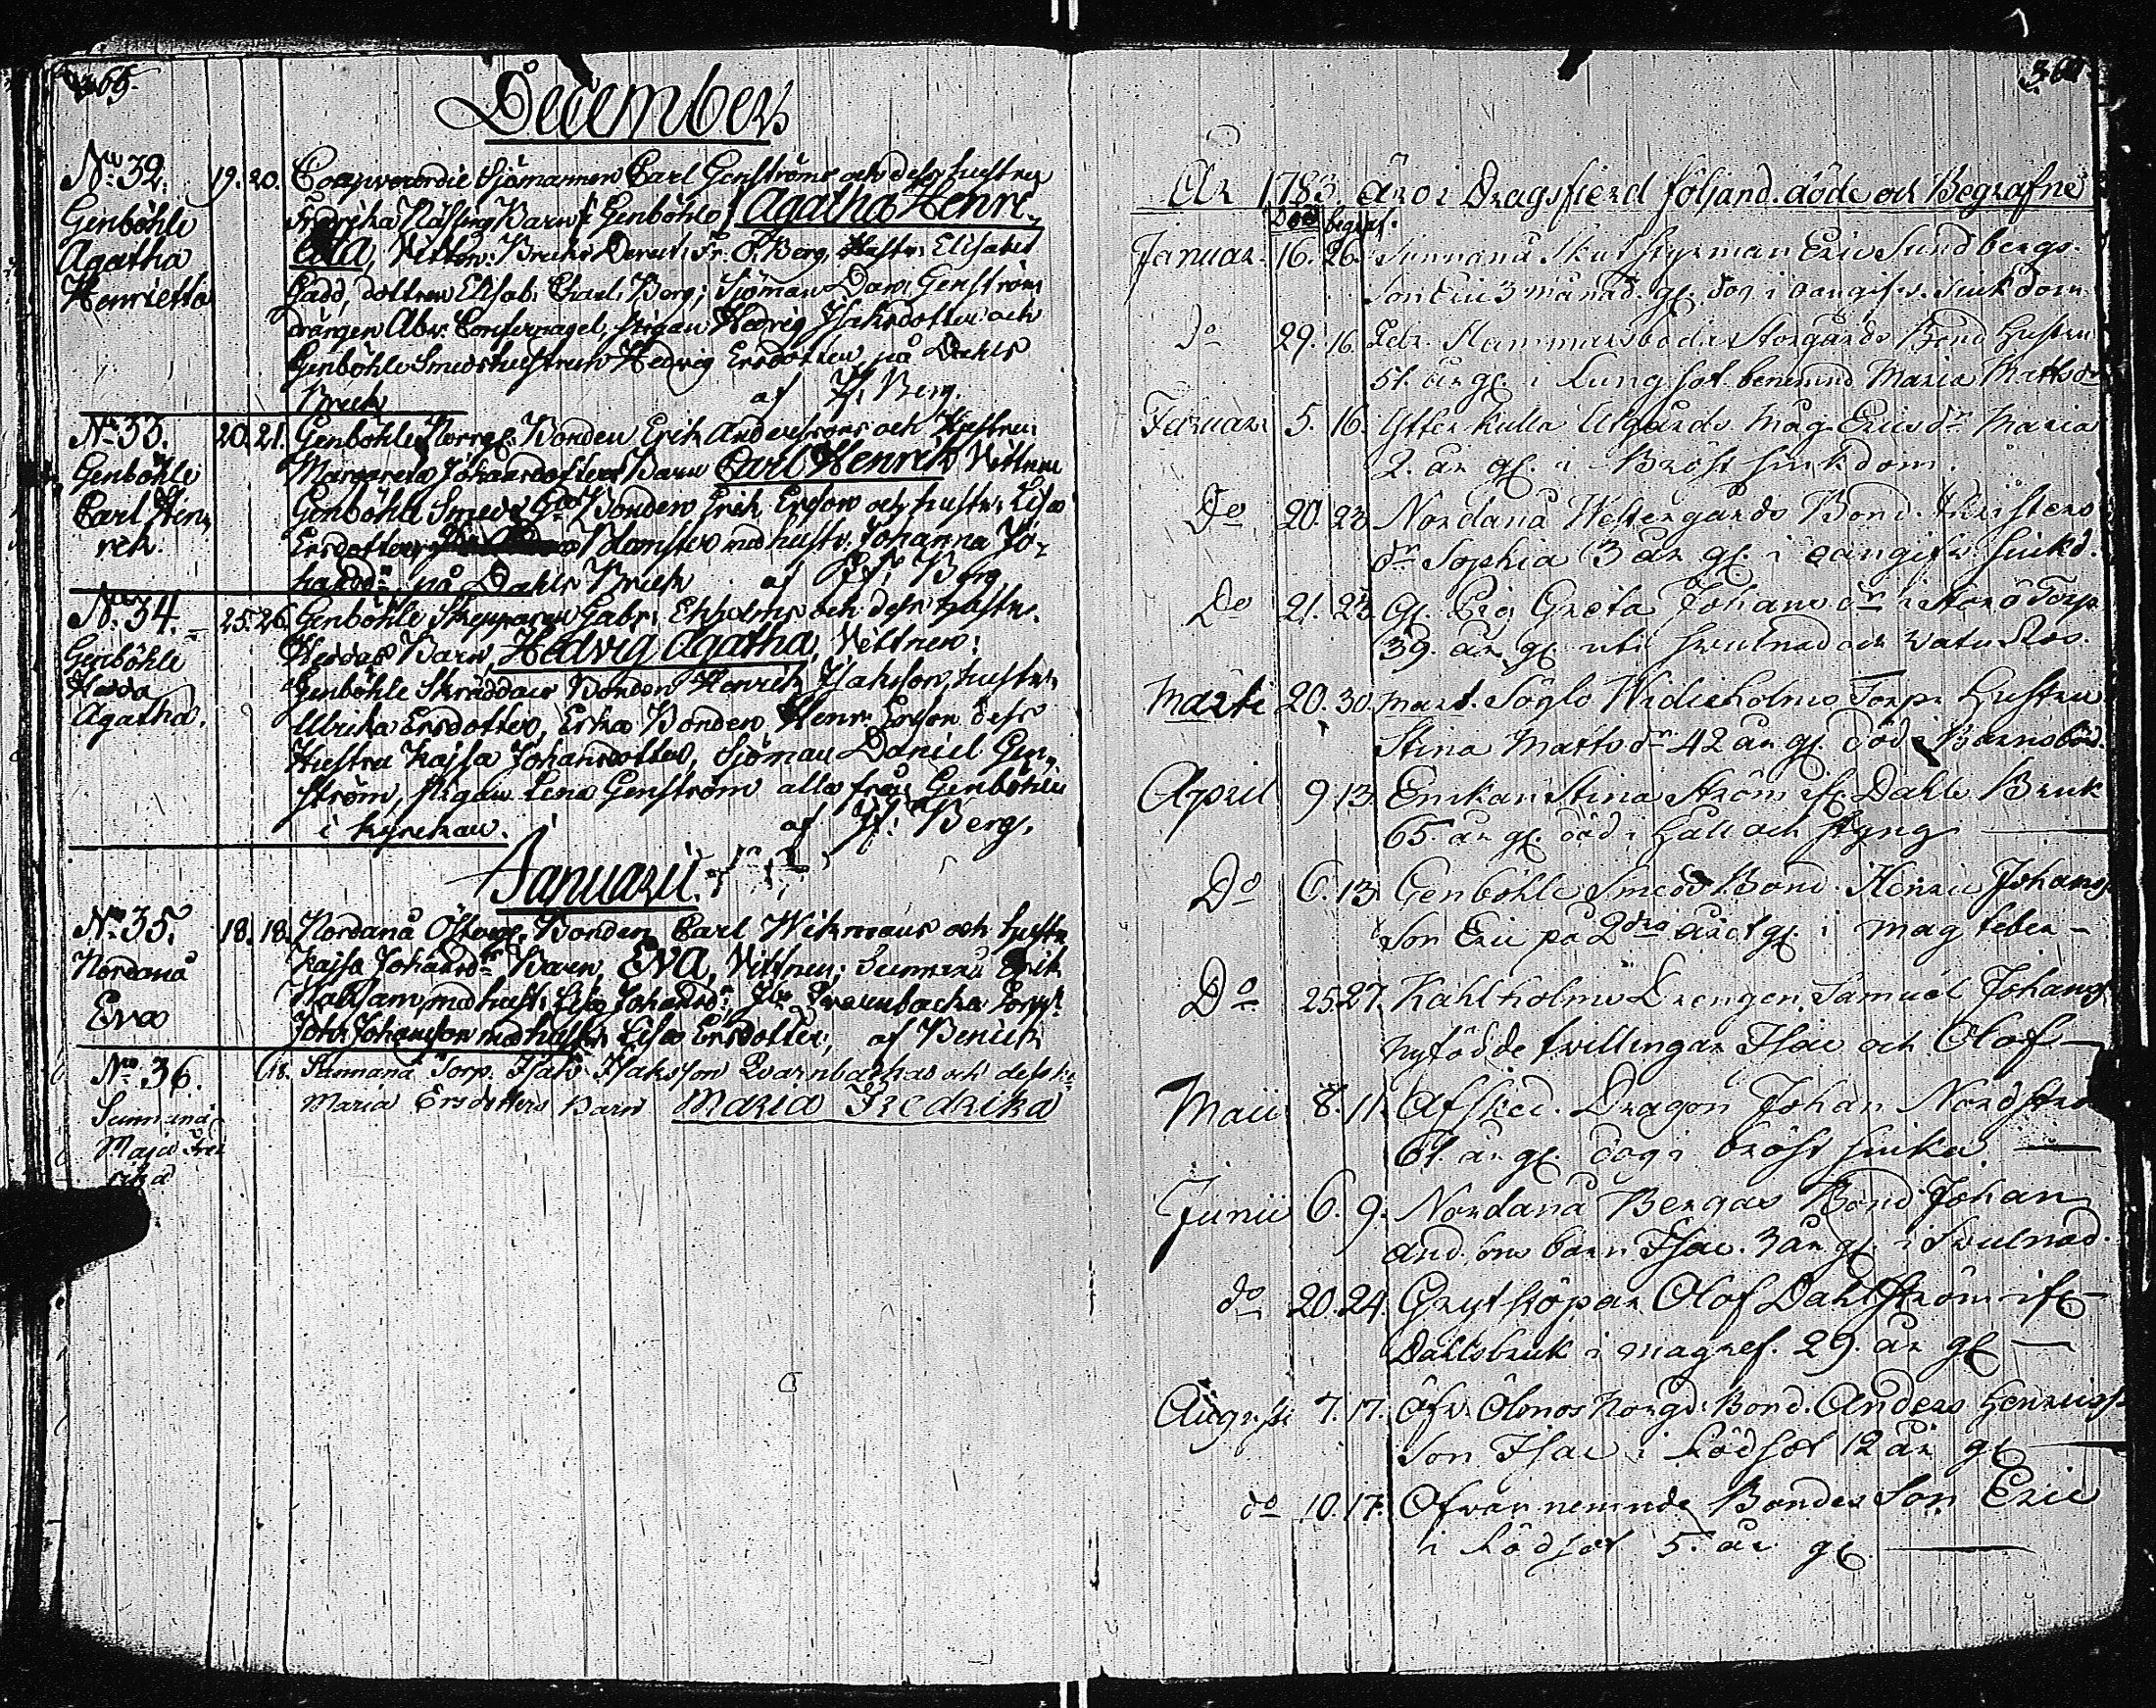 December
No 32. 19. 20. Coopverdie Sjömannen Carl Genströms och dess hustru
Genböhle Fredrika Barn i Genböhle Agatha Henri-
Agatha etta, Vittnen: Bruks Berg, Hustr. Elisabet
Henrietta Gadd, dottren Elisab. Charl. Berg; Sjöman Dan. Genström
drängen Abr. pigan Hedvig Isaksdotter och
Genböhle Smeds hustrun Hedvig Ersdotter på Dahls
Bruk af H. Berg.
No 33. 20. 21. Genböhle Norrg. Bonden Erik Anderssons och Hustru
Genböhle Margareta Johansdotters Barn Carl Henrik Vittnen
Carl Hen- Genböhle Smeds Bonden Erik Ersson och hustr. Lisa
rik. Ersdotter, Blomster med hustr. Johanna Jo-
hansdr på Dahls Bruk af H. Berg
No 34. 25. 26. Genböhle Skepparen Gabr. Ekholms och dess hustr.
Genböhle Heddas Barn, Hedvig Agatha, Vittnen:
Hedda Genböhle Skräddars Bonden Henrik Isaksson, hustr.
Agatha. Ulrika Ersdotter, Bonden Henr. Ersson dess
Hustru Kajsa Johansdotter, Sjöman Daniel Gen-
ström, pigan Lena Genström alla från Genböhle
i kyrckan. af H. Berg.
Januarii.
No 35. 18. 18. Nordanå Österg. Bonden Carl Wikmans och hustr
Nordanå Kajsa Johansdrs Barn, Eva, Vittnen; Sunnanå Erik
Eva med hust. Lisa Johansdr,
Joh. Johansson med hustr. Lisa Ersdotter, af Benick
No 36. 18. Sunnanå Torp. Isak Isaksson Qvarnbackas och dess h.
Sunnanå Maria Ersdotters barn Maria Fredrika
Maja Fred
rika
Åhr 1783. äro i Dragsfierd följand. döde och Begrafne
Död begraf.
Januar. 16. 26. Sunnanå Skut styrman Eric Sundbergs
Son Eric 3 månad. gl. dog i oangifv. siukdom
do 29. 16. Febr. Hammarsboda Storgårds Bond Hustru
51. år gl. i Lungsot benemnd Maria Mattsdr
Februar. 5. 16. Ytterkulla Uttgårds Måg Erics dr Maria
2. år gl. i Bröst siukdom.
Do 20. 23. Nordanå Westergårds Bond. Christers
dr Sophia 3 år gl. i oangifv. siukd.
Do 21. 23. gl. Pig. Greta Johans dr i Torp
39. år gl. uti swulnad och watu
Martii 20. 30. mart. Söglö Widikholms Torp. Hustru
Stina Matts dr 42 år gl. död i Barnsbörd.
April 9. 13. Enckan Stina Ström ifr. Dahls Bruk
65. år gl. död i Håll och styng
Do 6. 13. Genböhle Smeds Bond. Henric Johans
Son Eric på 2dra året gl. i mag feber
Do 25. 27. Kahlholms Drengen Samuel Johans
nyfödde tvillingar Isac och Olof
Maii 8. 11. Afsked. Dragon Johan Nordströ
61. år gl. dog i bröst siuka
Junii 6. 9. Nordanå Bergas Bond Johan
And. sons barn Isac. 3 år gl. i Swulnad.
do 20. 24. Grytstöpar Olof Dahlström ifr
Dahlsbruk i magref. 29. år gl
Augusti 7. 17. Öfv. Ölmos Norgd. Bond. Anders Henrics
Son Isac i Rödsot 12 år gl
do 10. 17. Ofvan nemnde Bondes Son Eric
i Rödsot 5. år gl